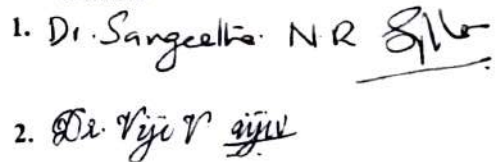 1. Dr. Sangeetha N R
2. Dr. Viji V